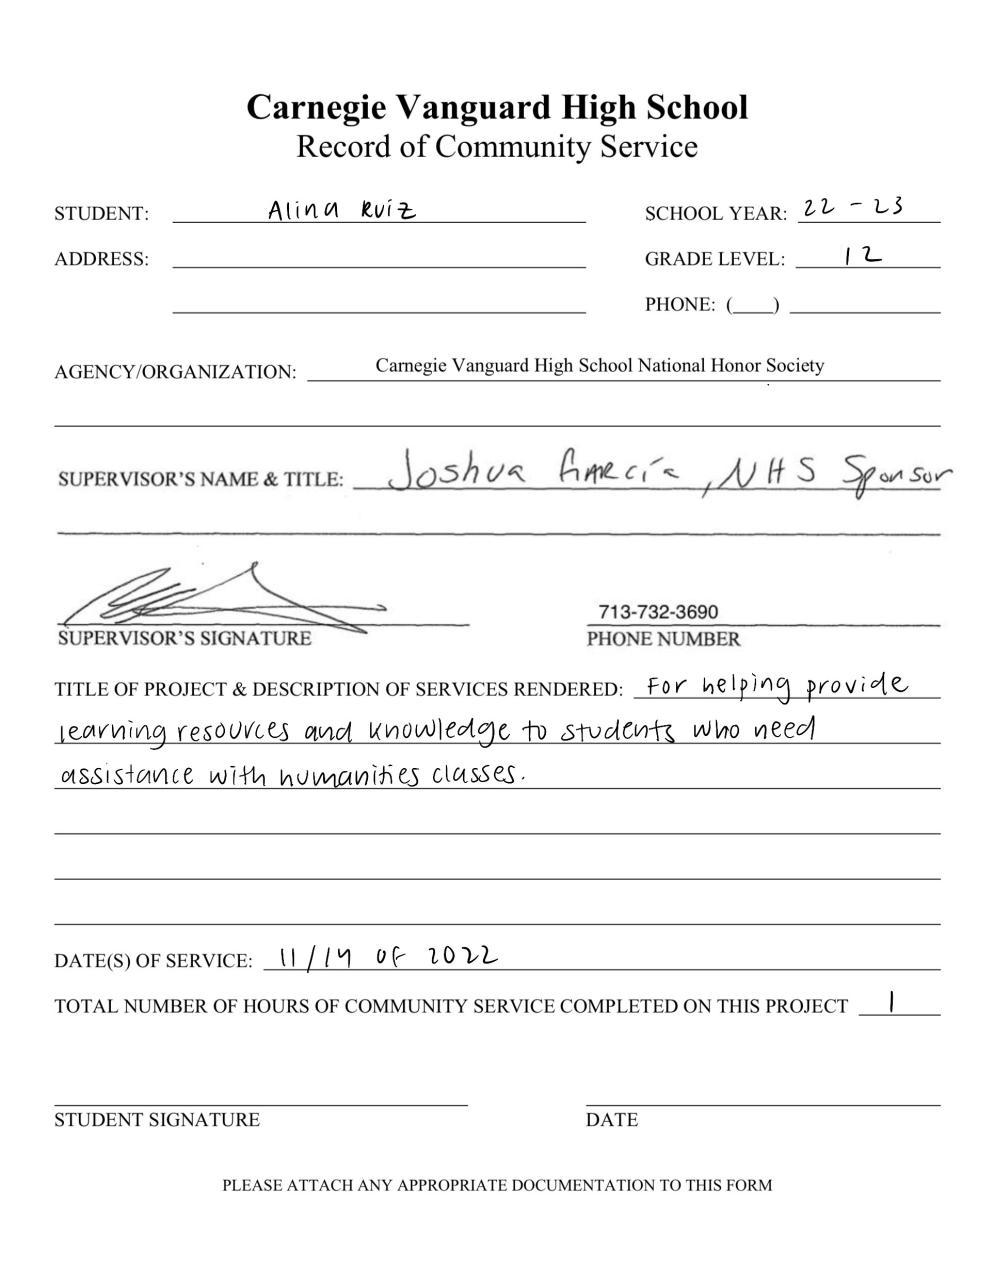 Carnegie Vanguard High School
Record of Community Service
STUDENT: Alina Ruiz SCHOOL YEAR: 22 - 23
ADDRESS: GRADE LEVEL: 12
PHONE: (___)
AGENCY/ORGANIZATION: Carnegie Vanguard High School National Honor Society
SUPERVISOR'S NAME & TITLE: Joshua García, NHS Sponsor
713-732-3690
SUPERVISOR'S SIGNATURE PHONE NUMBER
TITLE OF PROJECT & DESCRIPTION OF SERVICES RENDERED: For helping provide
learning resources and knowledge to students who need
assistance with humanities classes.
DATE(S) OF SERVICE: 11/14 of 2022
TOTAL NUMBER OF HOURS OF COMMUNITY SERVICE COMPLETED ON THIS PROJECT 1
STUDENT SIGNATURE DATE
PLEASE ATTACH ANY APPROPRIATE DOCUMENTATION TO THIS FORM